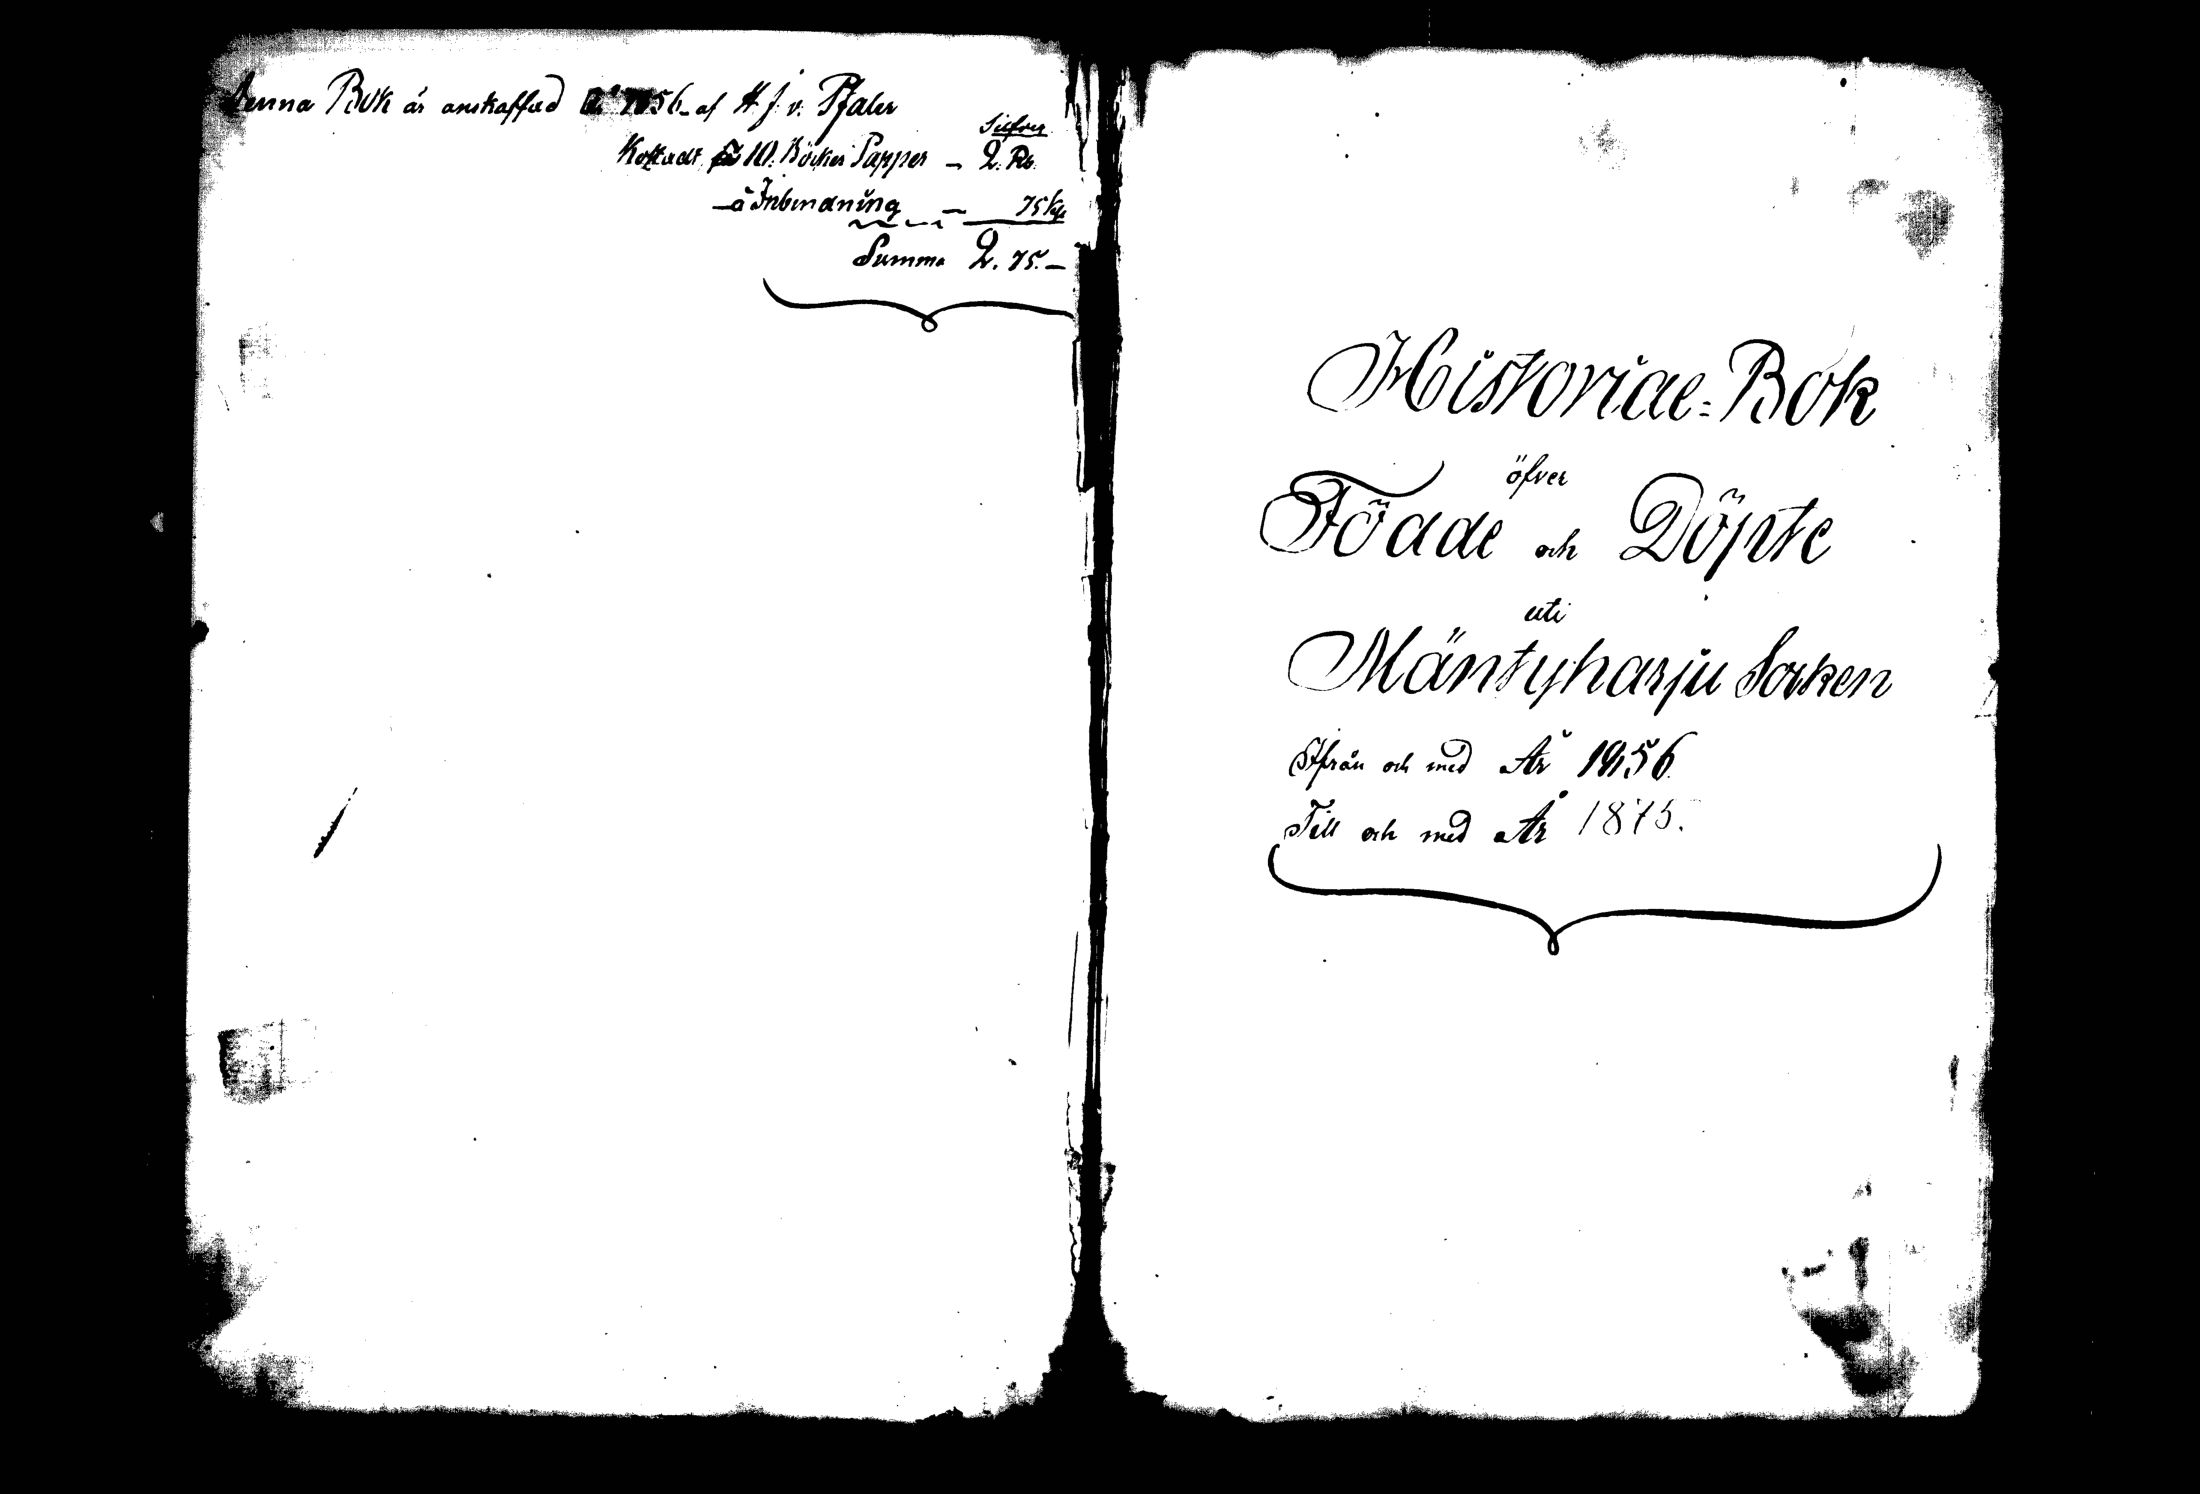 Denna Bok är anskaffad År 1856 af H. J. v. Pfaler
Silfver
Kostadt på 10. Böcker Papper — 2. Rb.
— å Inbindning — 75 kp
Summa 2. 75. —
Historiae=Bok
öfver
Födde och Döpte
uti
Mäntyharju Socken
Ifrån och med År 1856
Till och med År 1875.